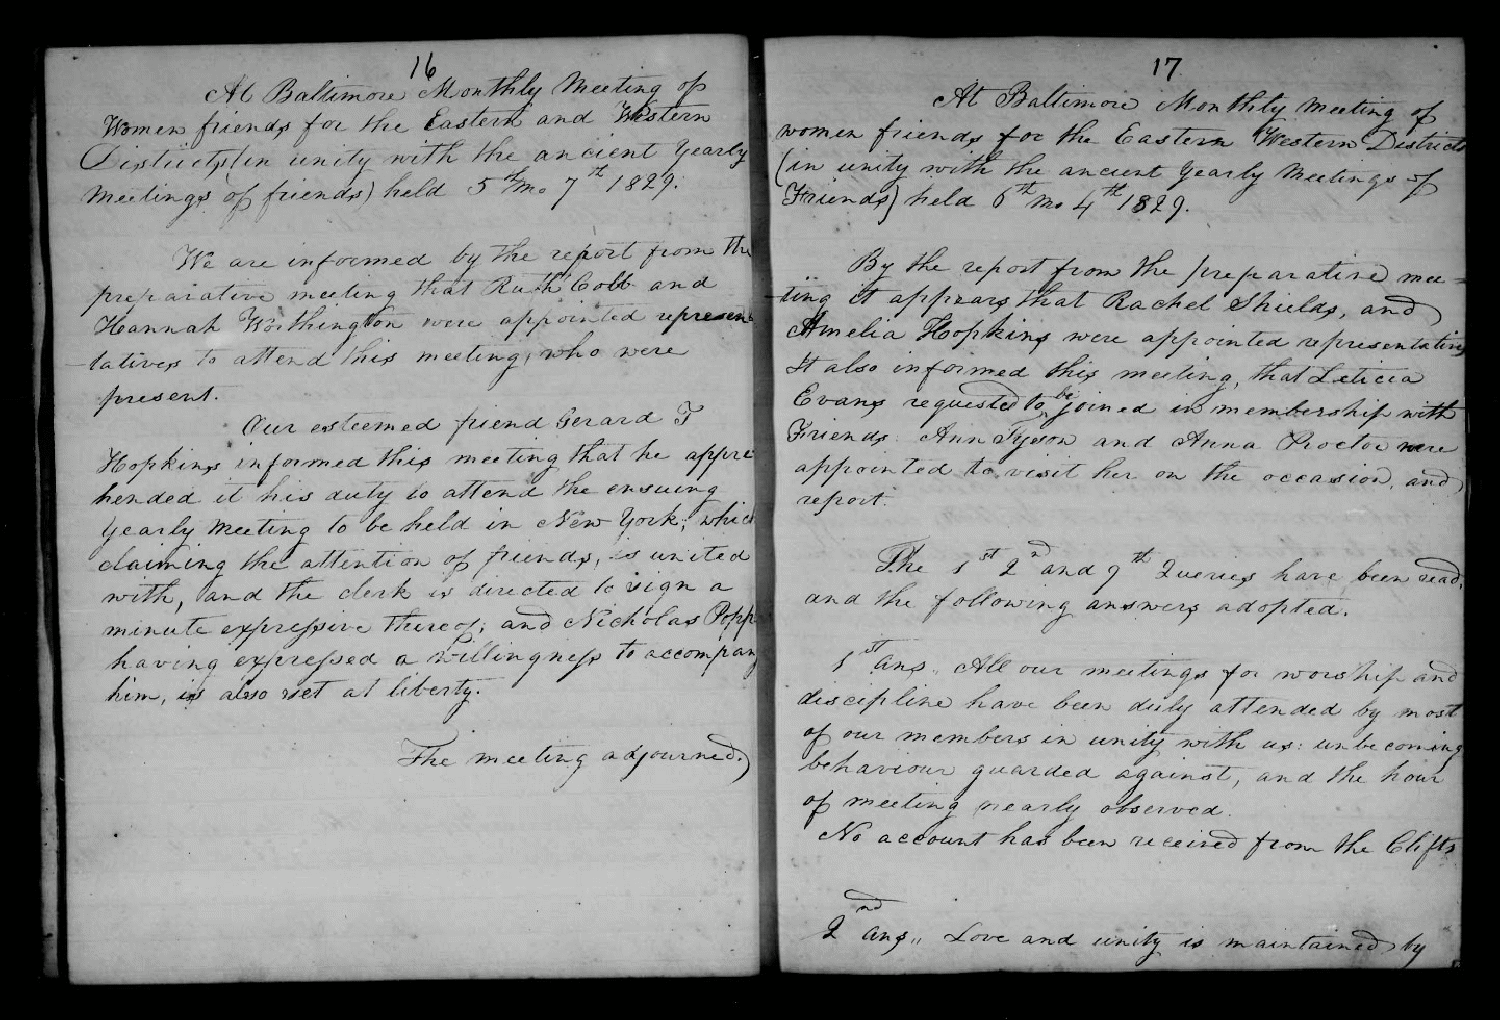 16
At Baltimore Monthly Meeting of
Women friends for the Eastern and Western
Districts (in unity with the ancient Yearly
Meetings of friends) held 5th mo 7th 1829.
We are informed by the report from the
preparative meeting that Ruth Cobb and
Hannah Worthington were appointed represen
-tatives to attend this meeting, who were
present.
Our esteemed friend Gerard T
Hopkins informed this meeting that he appre
hended it his duty to attend the ensuing
Yearly Meeting to be held in New York; which
claiming the attention of friends, is united
with, and the clerk is directed to sign a
minute expressive thereof; and Nicholas Popp
having expressed a willingness to accompany
him, is also set at liberty.
The meeting adjourned.
17
At Baltimore Monthly Meeting of
women friends for the Eastern Western Districts
(in unity with the ancient Yearly Meetings of
Friends) held 6th mo 4th 1829.
By the report from the preparative mee-
-ting it appears that Rachel Shields, and
Amelia Hopkins were appointed representatives
It also informed this meeting, that Leticia
Evans requested to be joined in membership with
Friends. Ann Tyson and Anna Proctor were
appointed to visit her on the occasion, and
report.
The 1st 2nd and 9th Queries have been read,
and the following answers adopted.
1st Ans. All our meetings for worship and
discipline have been duly attended by most
of our members in unity with us: unbecoming
behaviour guarded against, and the hour
of meeting nearly observed.
No account has been received from the Clifts
2nd Ans,, Love and unity is maintained by